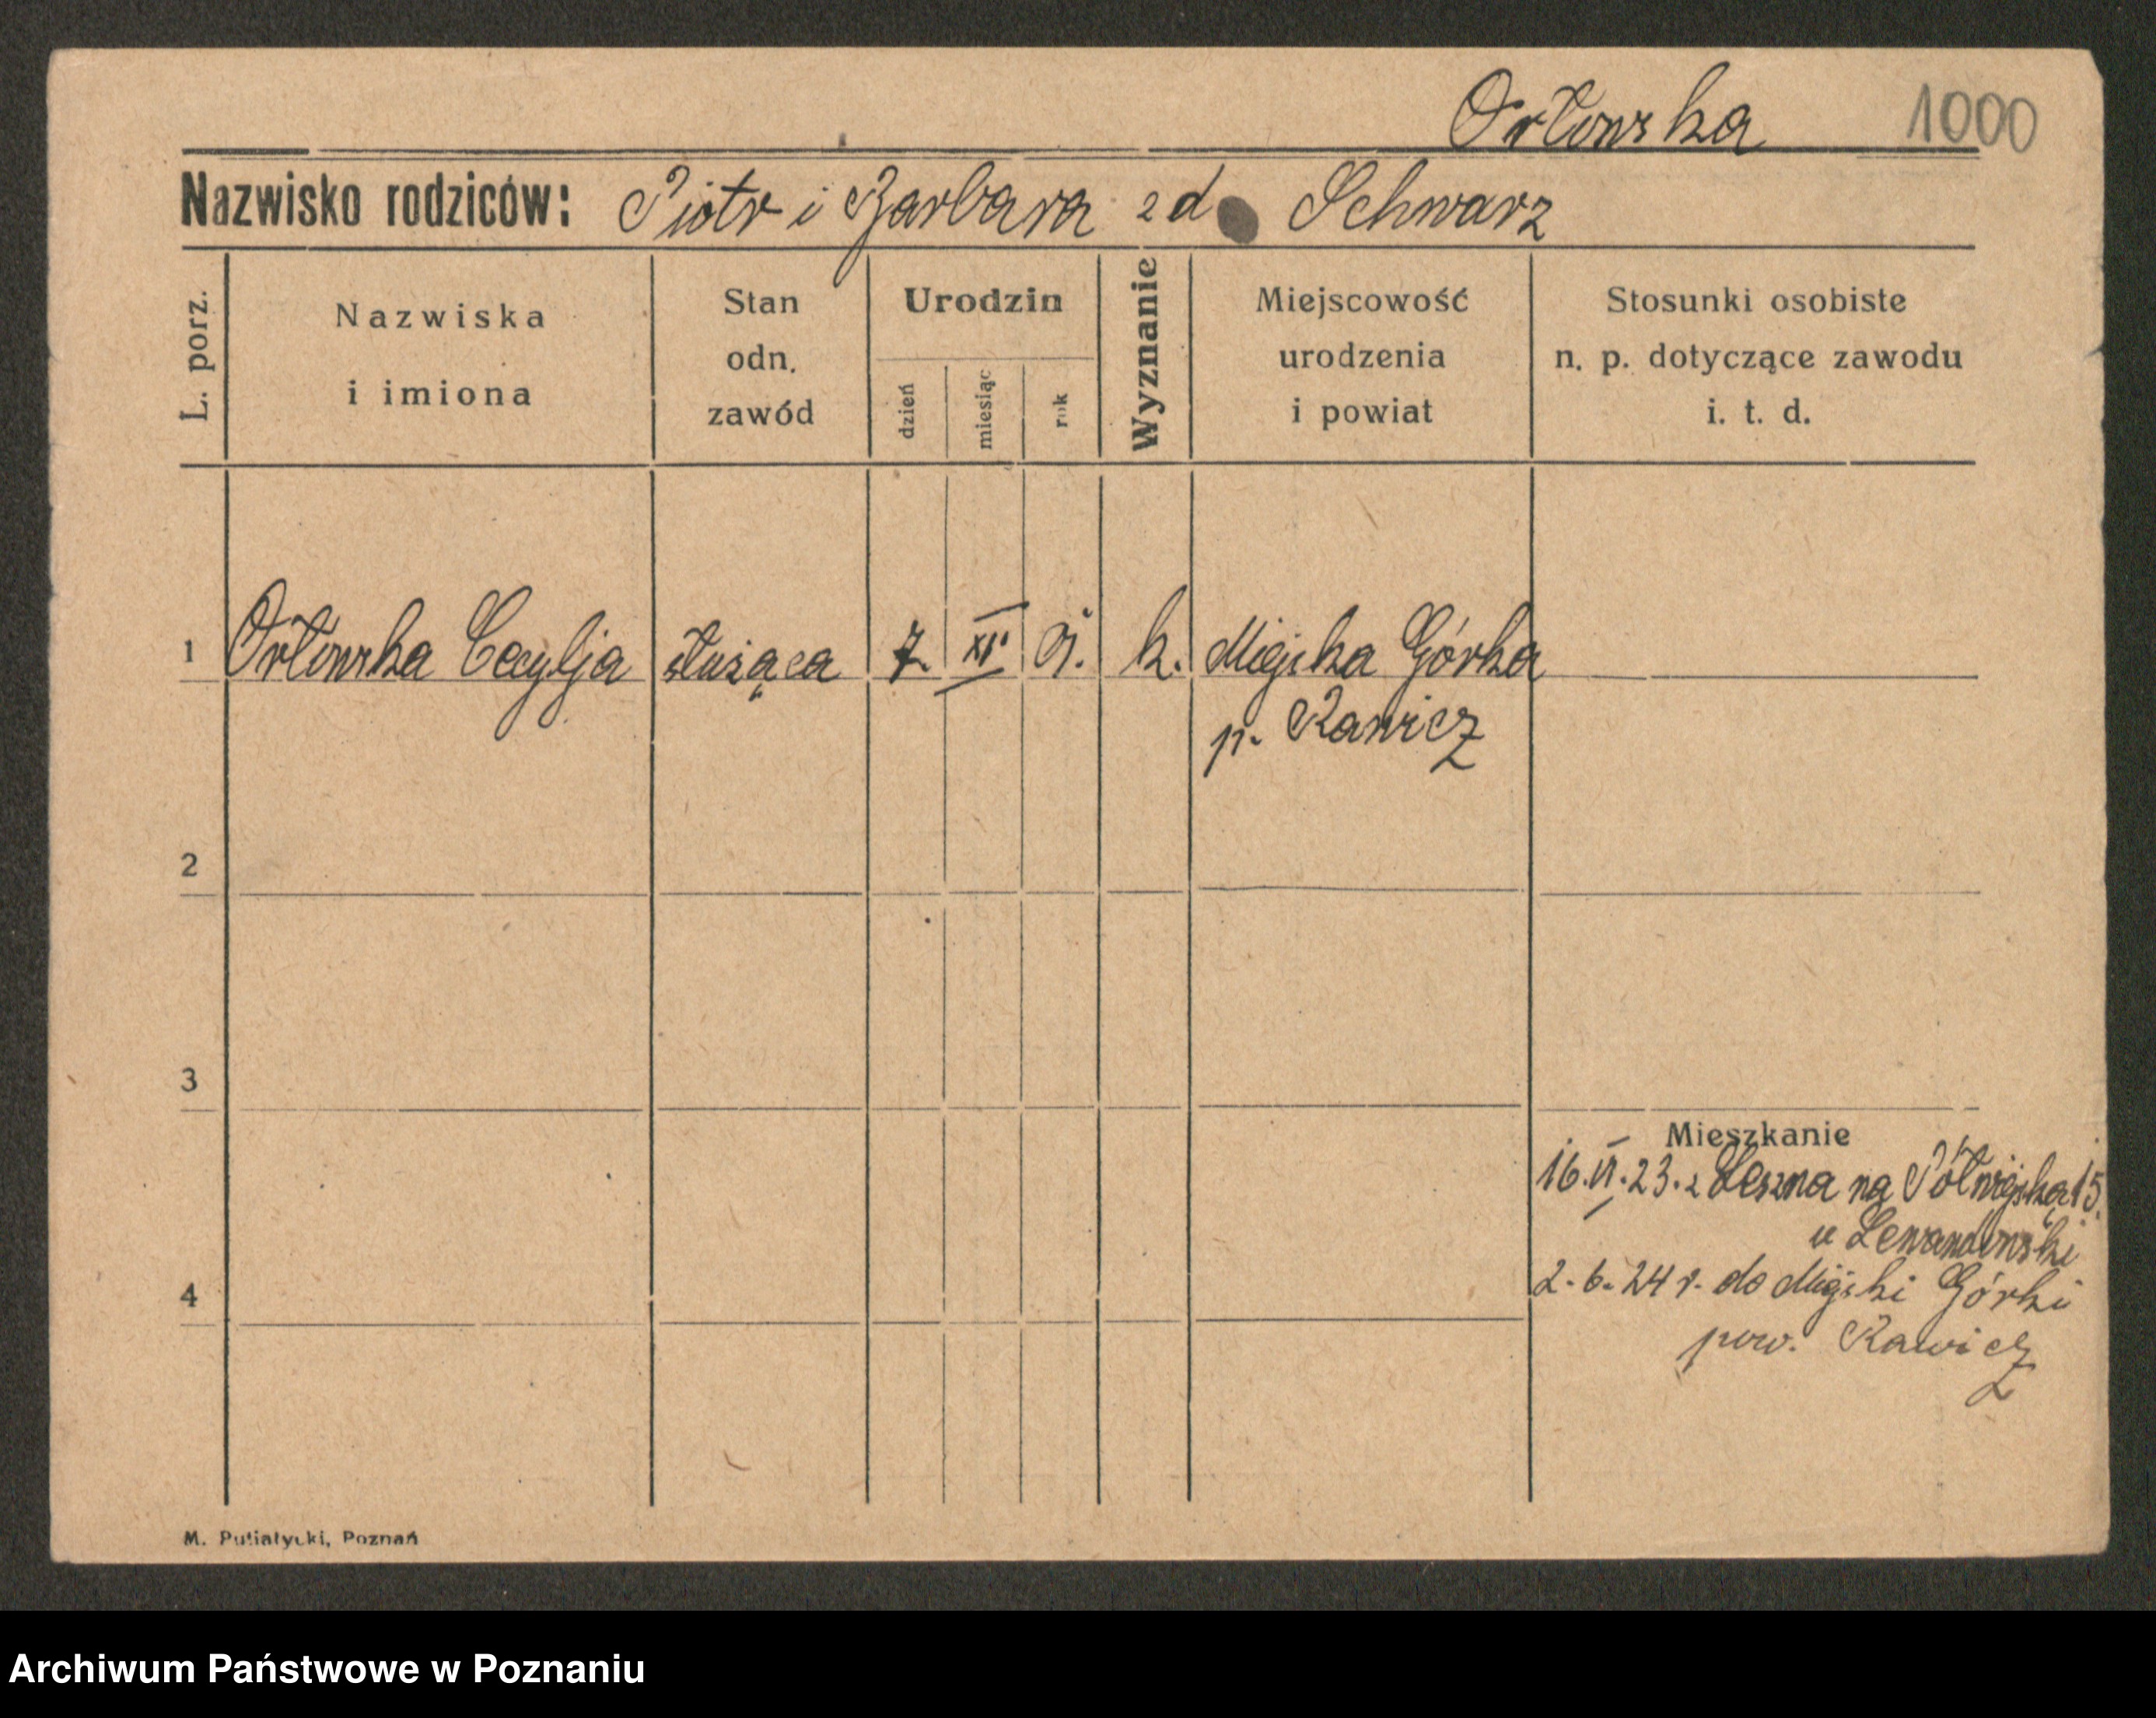 Orłowska 1000
Nazwisko rodziców: Piotr i Barbara zd Schwarz
L. porz.
Nazwiska
i imiona
Stan
odn.
zawód
Urodzin
dzień
miesiąc
rok
Wyznanie
Miejscowość
urodzenia
i powiat
Stosunki osobiste
n. p. dotyczące zawodu
i. t. d.
1 Orłowska Cecylja służąca 7. XII k. Miejska Górka
p. Rawicz
2
3
Mieszkanie
16.VI.23. z Leszna na Półwiejską 15.
u Lewandowski
4
2.6.24 r. do Miejski Górki
pow. Rawicz
M. Putiatycki, Poznań
Archiwum Państwowe w Poznaniu